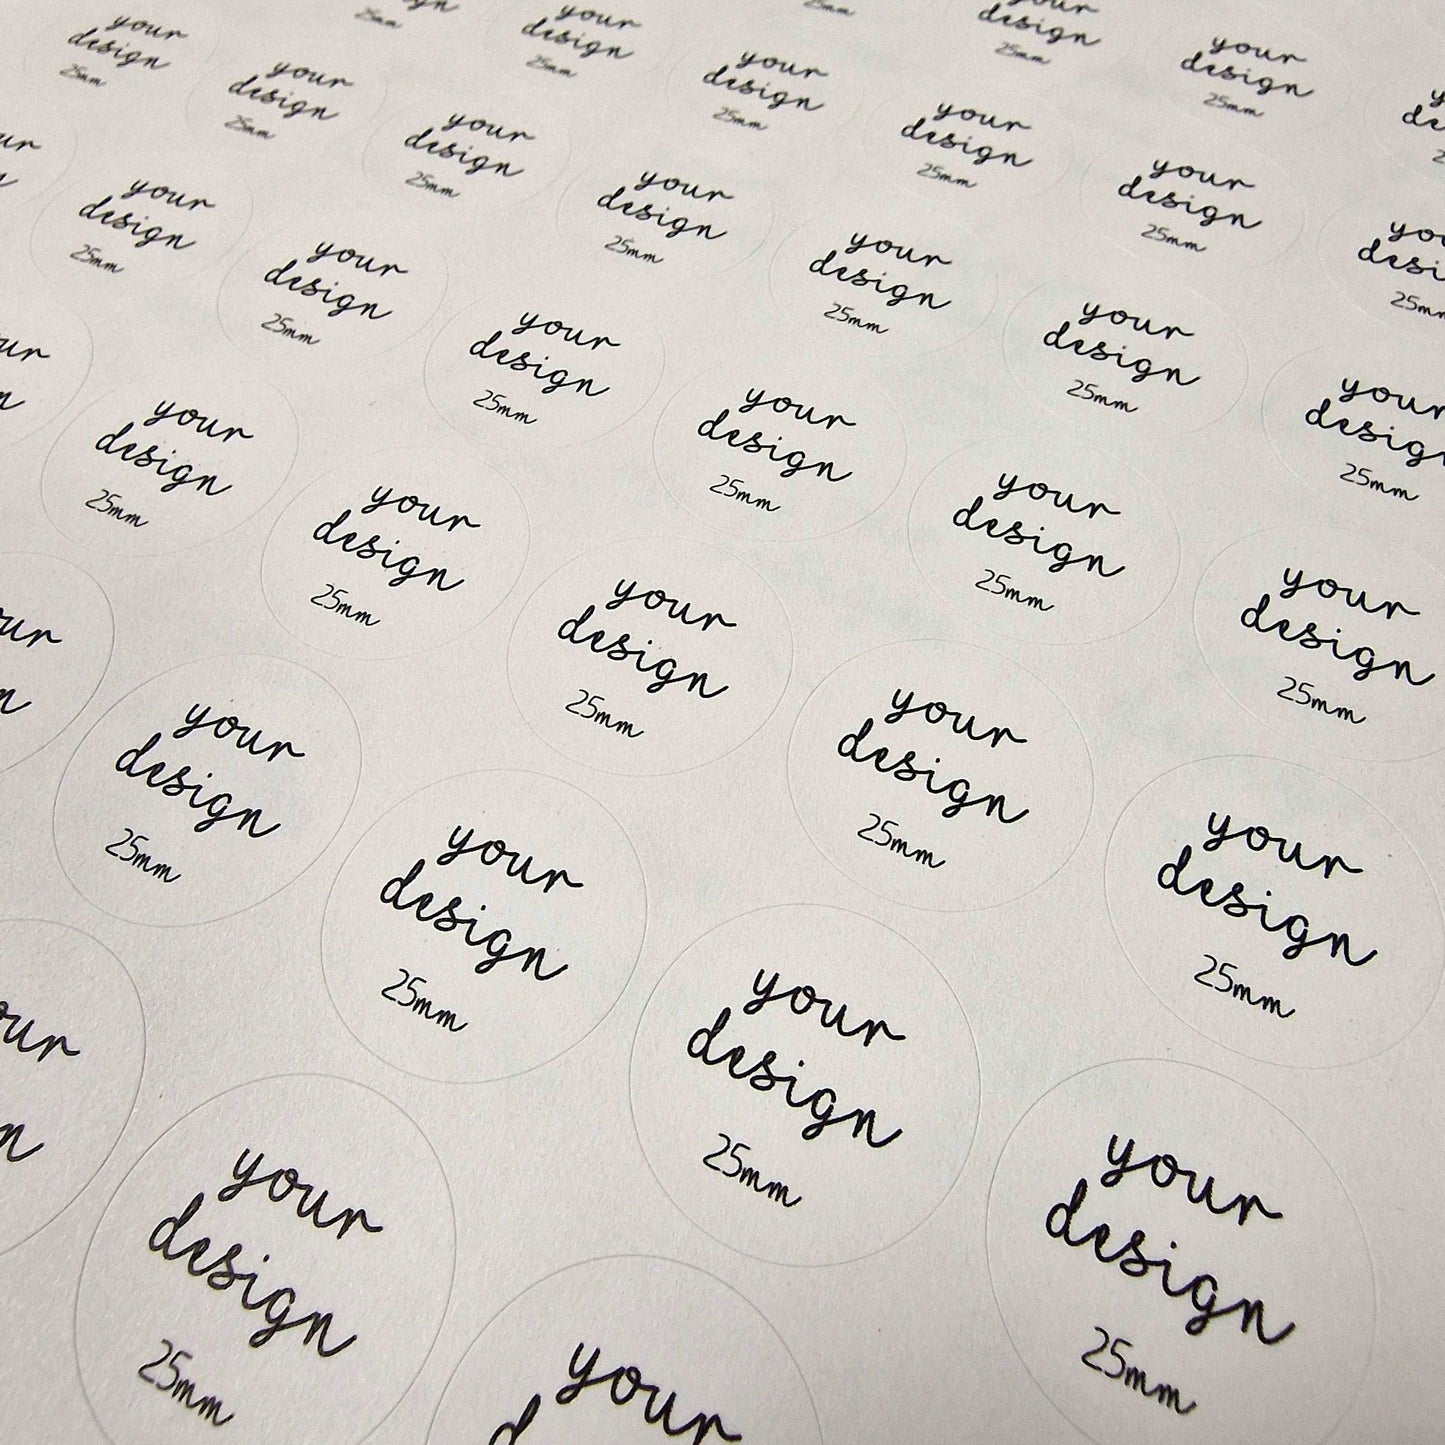 your
design
25mm
25mm
your
design
25mm
25mm
your
design
25mm
your
design
25mm
your
design
25mm
your
design
25mm
your
design
25mm
your
design
25mm
your
design
25mm
your
design
25mm
your
design
25mm
your
design
25mm
your
design
25mm
your
design
25mm
your
design
25mm
your
25mm
your
design
25mm
your
design
25mm
your
design
25mm
your
design
25mm
your
design
25mm
your
design
25mm
your
design
25mm
your
design
25mm
your
design
25mm
your
design
25mm
your
design
25mm
your
design
25mm
your
design
25mm
your